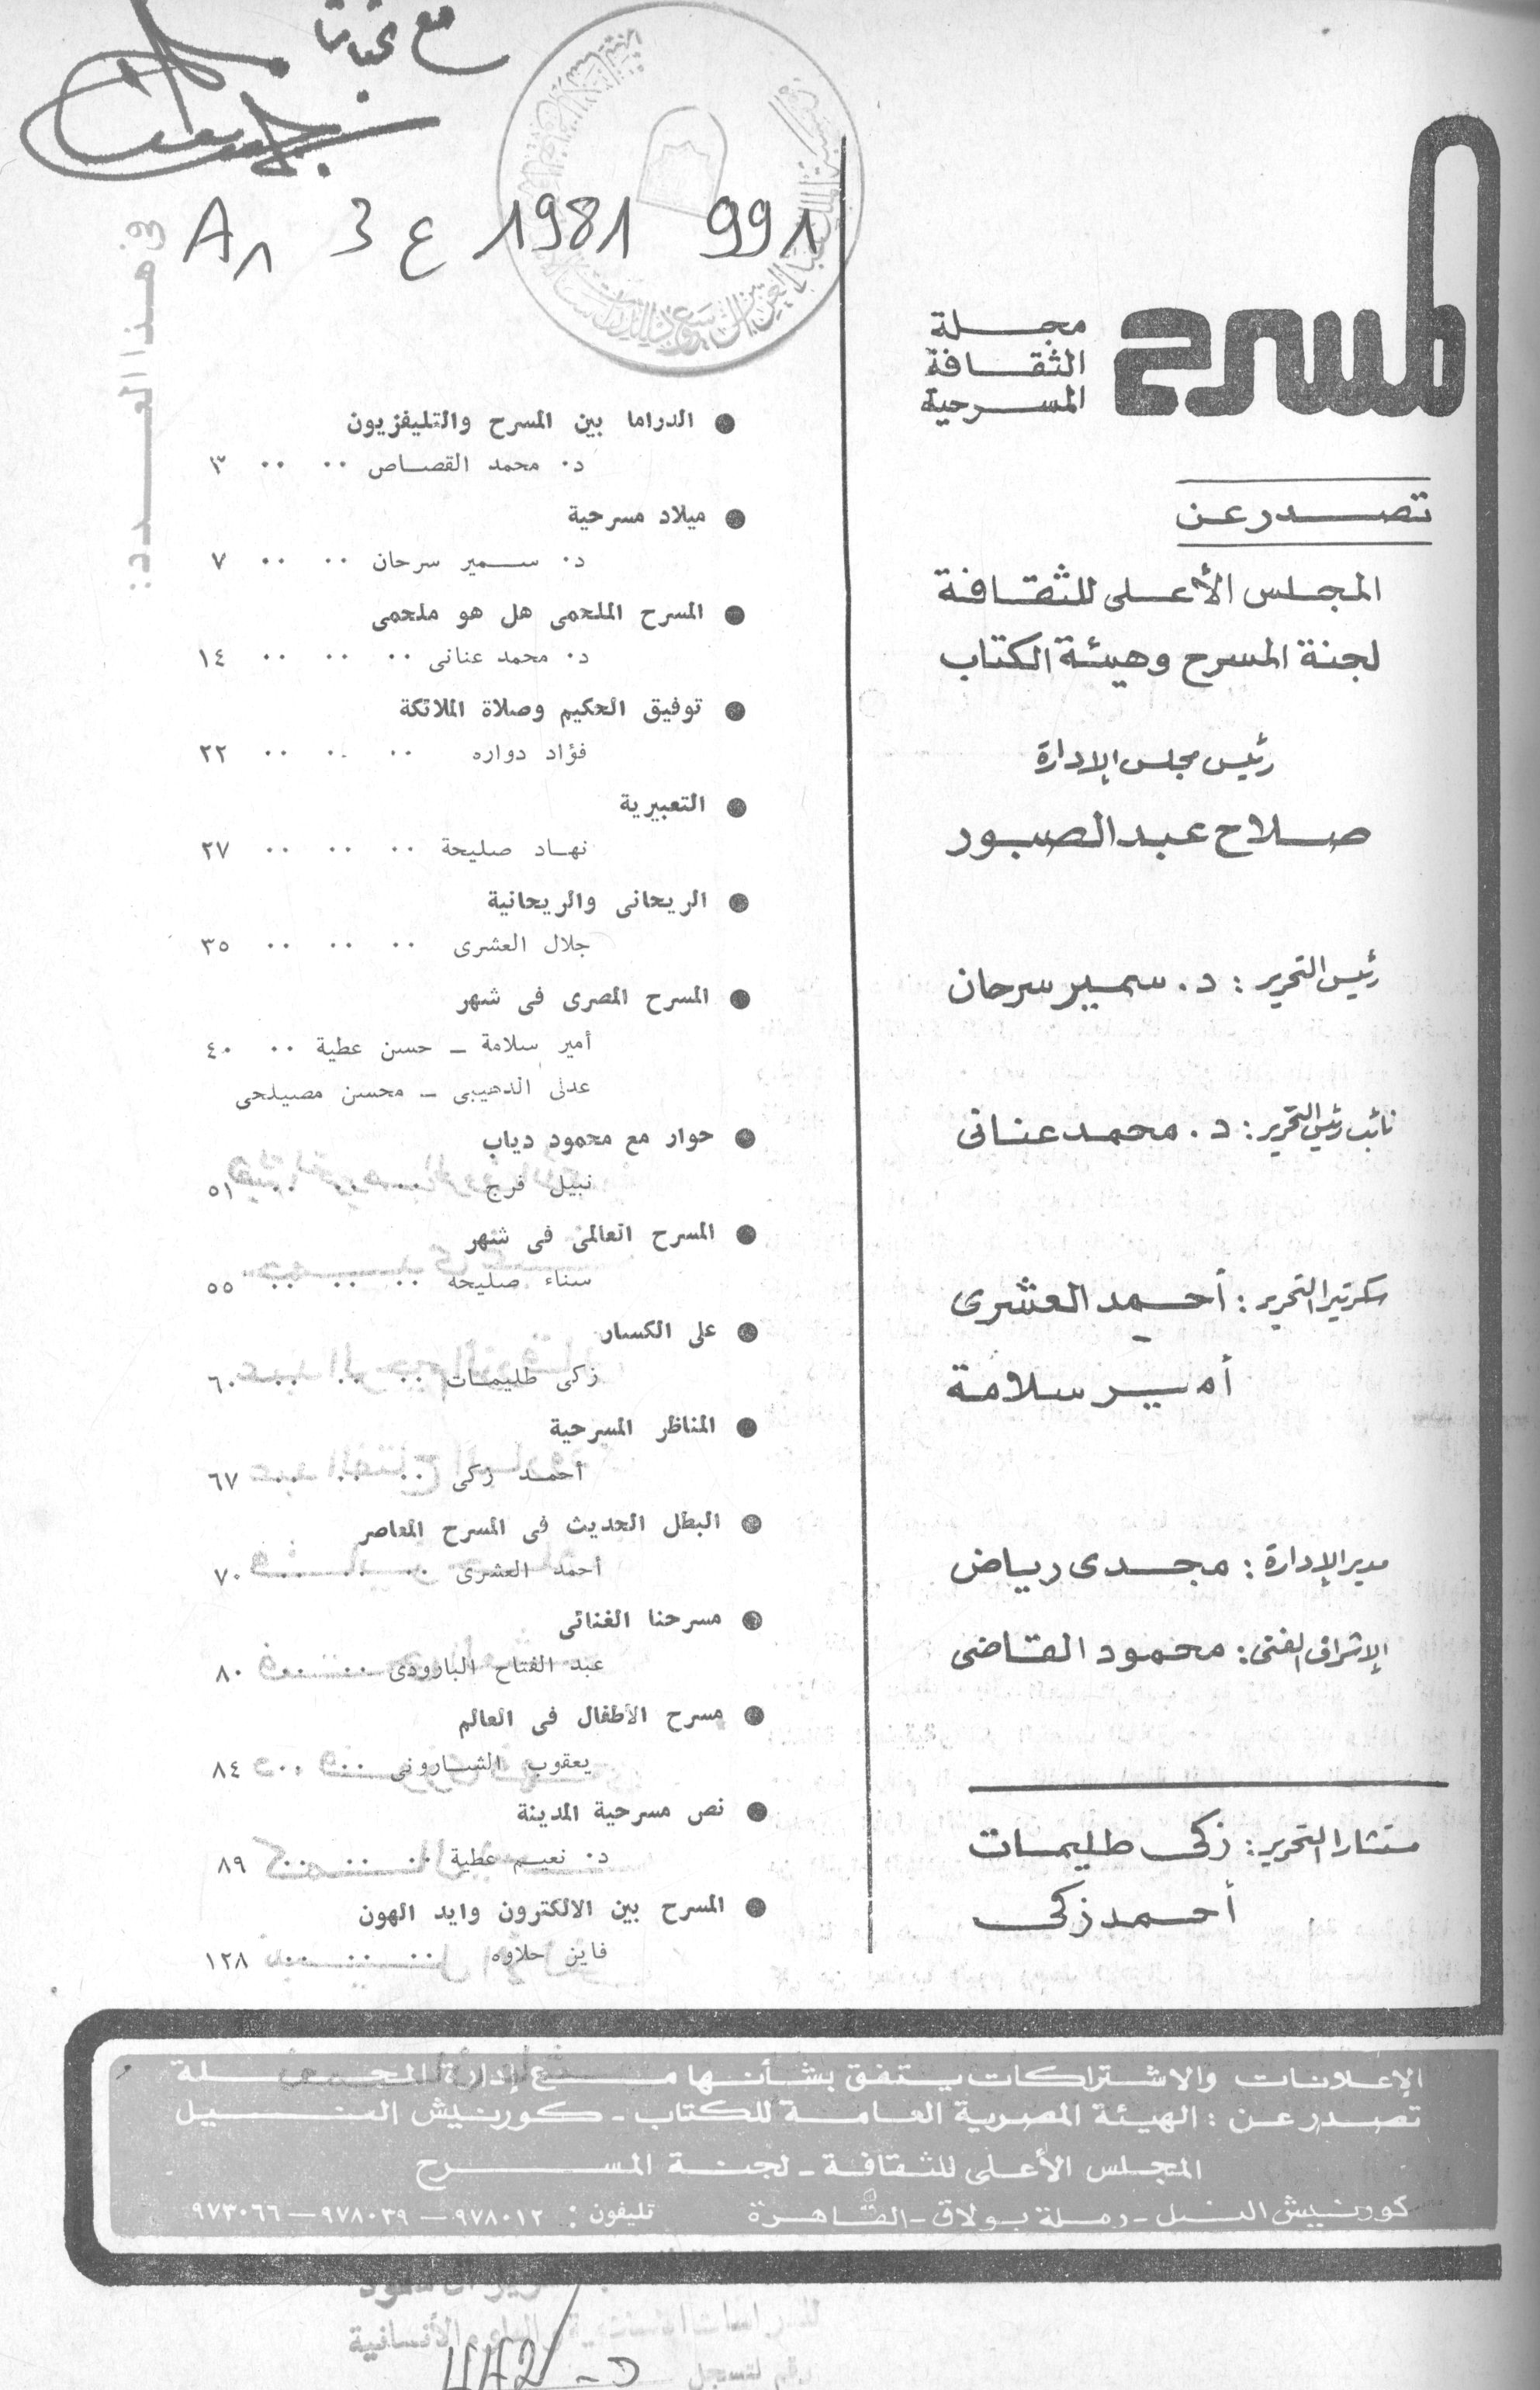 مع تحياتى
A٨ 3 ع 1981 991
المسرح
مجلة
الثقافة
المسرحية
تصدر عن
المجلس الأعلى للثقافة
لجنة المسرح وهيئة الكتاب
رئيس مجلس الإدارة
صلاح عبد الصبور
رئيس التحرير : د. سمير سرحان
نائب رئيس التحرير : د. محمد عنانى
سكرتير التحرير : أحمد العشرى
أمير سلامة
مدير الإدارة : مجدى رياض
الإشراف الفنى : محمود القاضى
مستشار التحرير : زكى طليمات
أحمد زكى
فى هذا العدد :
● الدراما بين المسرح والتليفزيون
د. محمد القصاص .. .. ٣
● ميلاد مسرحية
د. سمير سرحان .. .. ٧
● المسرح الملحمى هل هو ملحمى
د. محمد عنانى .. .. .. ١٤
● توفيق الحكيم وصلاة الملائكة
فؤاد دواره .. .. .. ٢٢
● التعبيرية
نهاد صليحة .. .. .. ٢٧
● الريحانى والريحانية
جلال العشرى .. .. .. ٣٥
● المسرح المصرى فى شهر
أمير سلامة ــ حسن عطية .. ٤٠
عدلى الدهيبى ــ محسن مصيلحى
● حوار مع محمود دياب
نبيل فرج .. .. .. ٥١
● المسرح العالمى فى شهر
سناء صليحه .. .. .. ٥٥
● على الكسار
زكى طليمات .. .. .. ٦٠
● المناظر المسرحية
أحمد زكى .. .. .. ٦٧
● البطل الحديث فى المسرح المعاصر
أحمد العشرى .. .. .. ٧٠
● مسرحنا الغنائى
عبد الفتاح البارودى .. .. ٨٠
● مسرح الأطفال فى العالم
يعقوب الشارونى .. .. ٨٤
● نص مسرحية المدينة
د. نعيم عطية .. .. .. ٨٩
● المسرح بين الالكترون وايد الهون
فاين حلاوه .. .. .. ١٢٨
الإعلانات والاشتراكات يتفق بشأنها مع إدارة المجلة
تصدر عن : الهيئة المصرية العامة للكتاب - كورنيش النيل
المجلس الأعلى للثقافة - لجنة المسرح
كورنيش النيل - رملة بولاق - القاهرة تليفون : ٩٧٨٠١٢ – ٩٧٨٠٣٩ – ٩٧٣٠٦٦